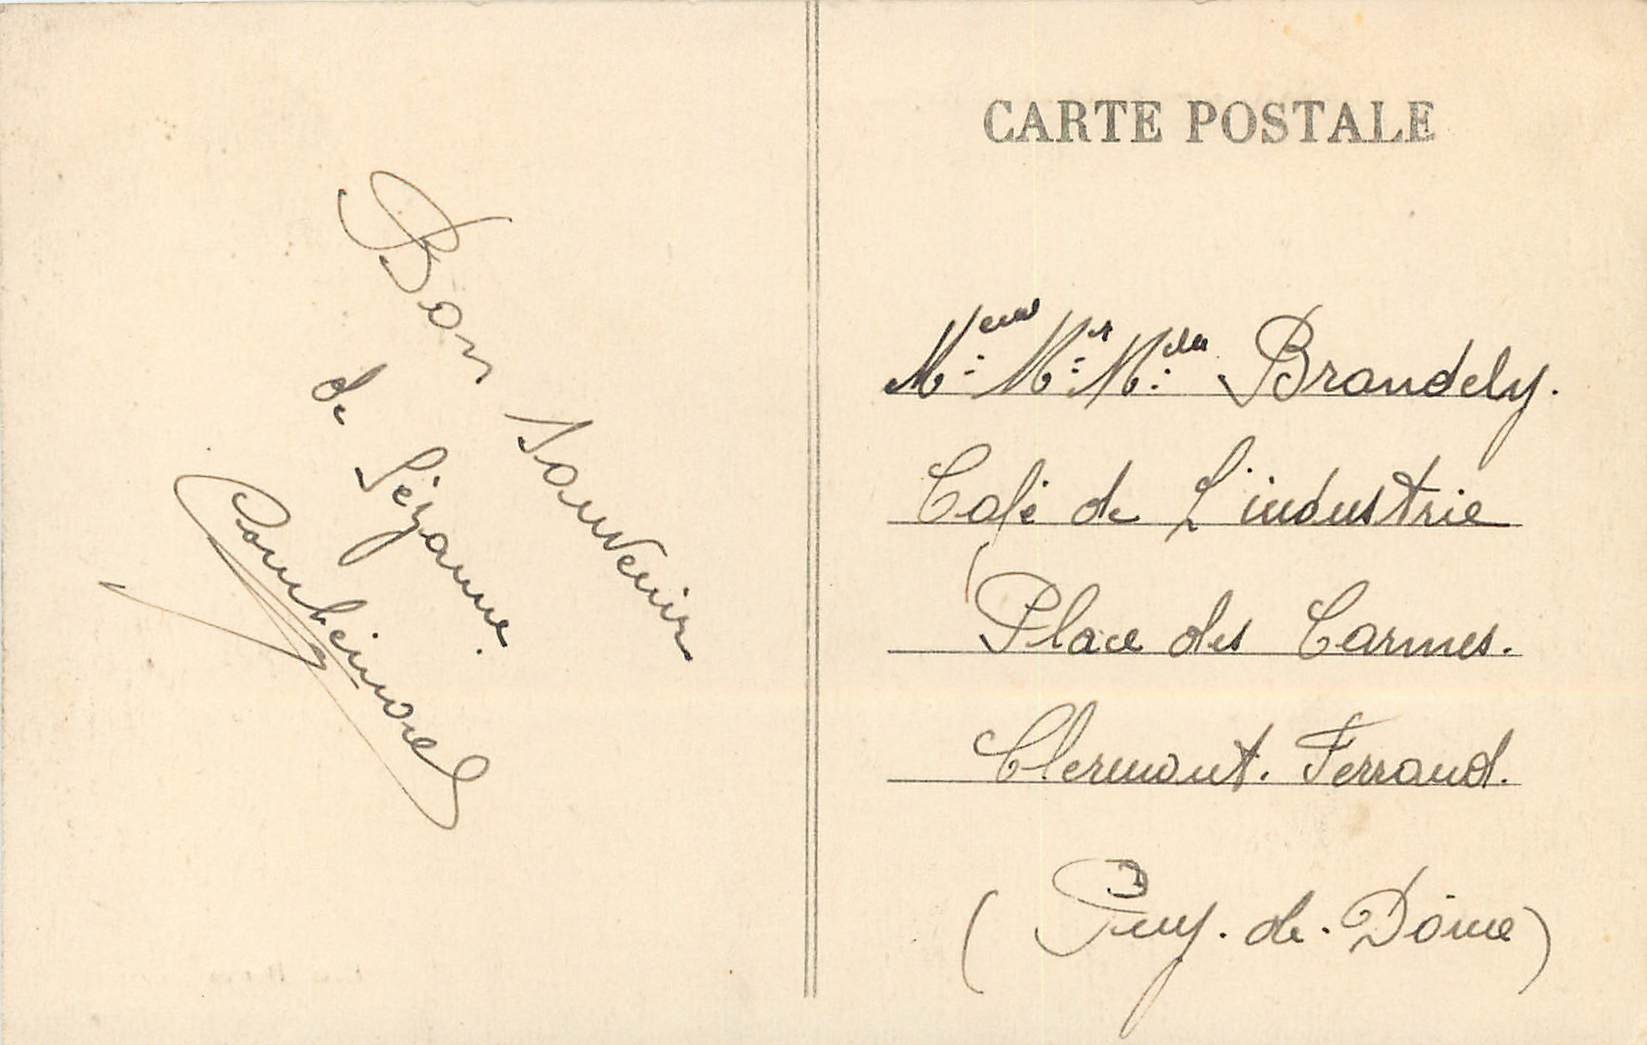 CARTE POSTALE
Bon Souvenir
de Sézanne.
Mr Brandely.
Café de L'industrie
Place des Carmes.
Clermont. Ferrand.
(Puy. de. Dôme)